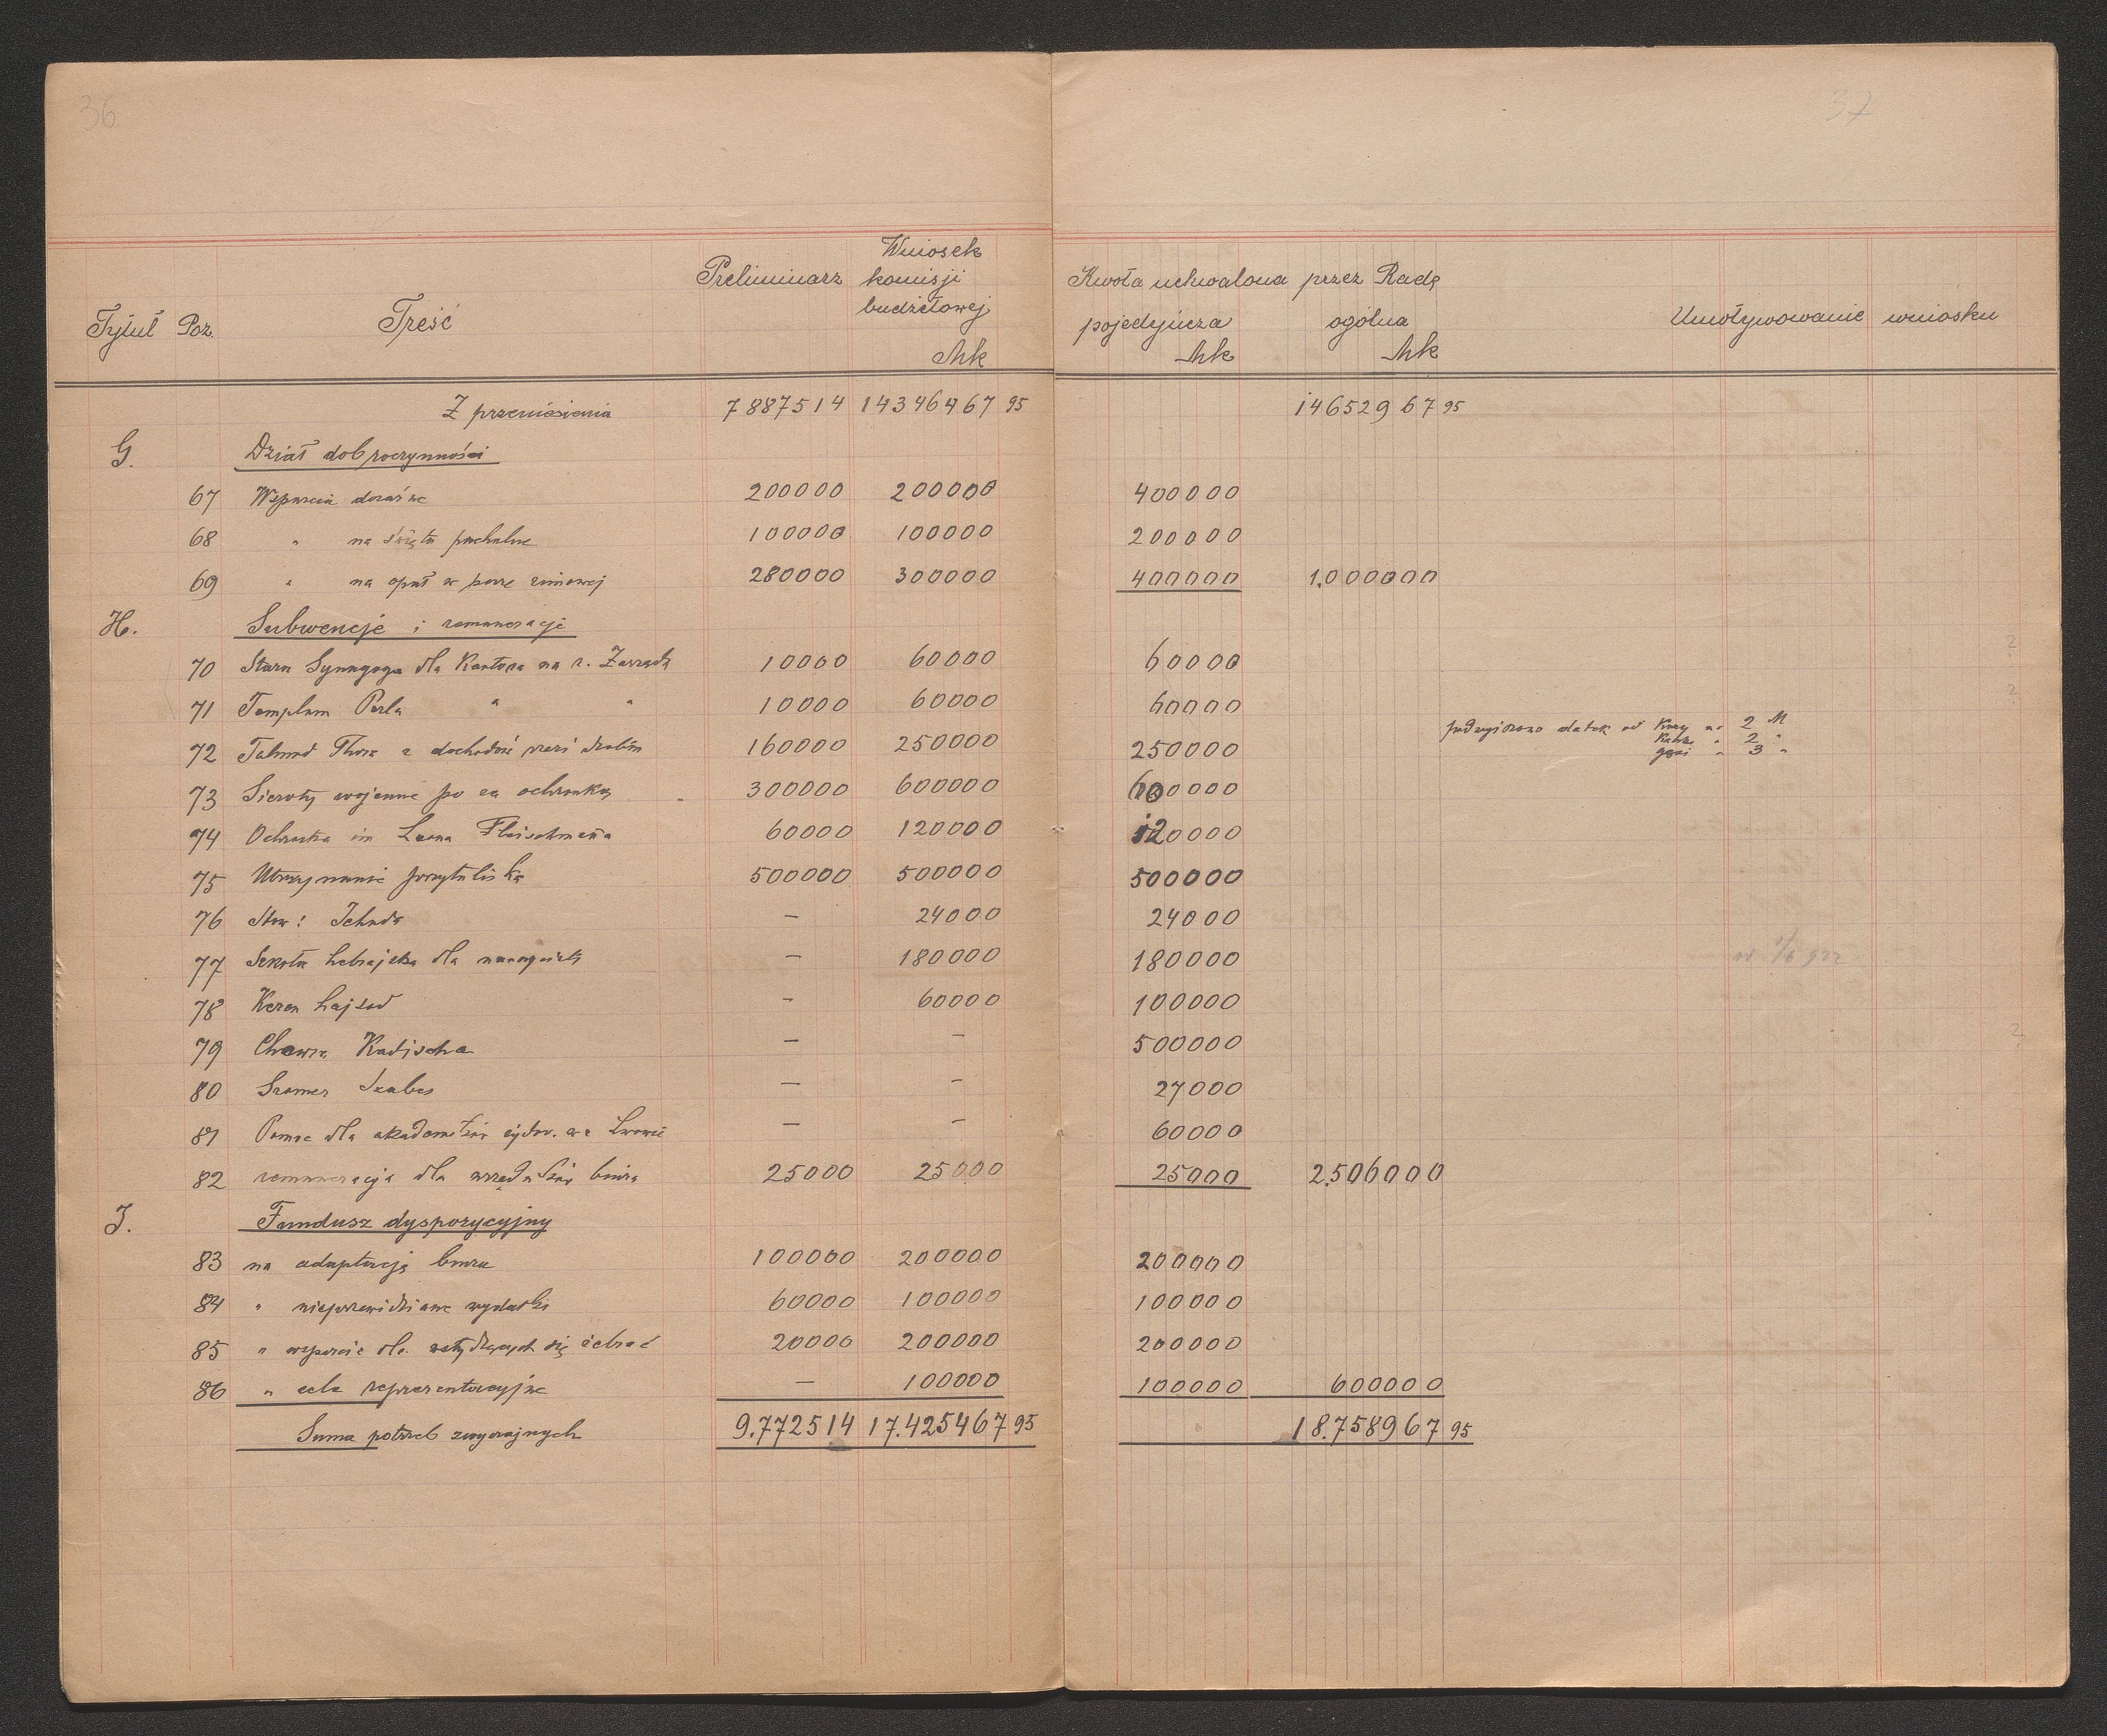 36 37
Tytuł Poz. Treść Preliminarz Wniosek komisji budżetowej Mk Kwota uchwalona przez Radę pojedyńcza Mk ogólna Mk Umotywowanie wniosku
Z przeniesienia 7887514 14346467 95 14652967 95
G. Dział dobroczynności
67 Wsparcia doraźne 200000 200000 400000
68 " na święta paschalne 100000 100000 200000
69 " na opał w porze zimowej 280000 300000 400000 1.000000
H. Subwencje i remuneracje
70 Stara Synagoga dla Kantora na r. Zarządu 10000 60000 60000 2
71 Templum Perla " " 10000 60000 60000 2
72 Talmud Thora z dochodów rzezi drobiu 160000 250000 250000 podwyższono datek od Kury na 2 M
" 2 "
gęsi " 3 "
73 Sieroty wojenne po za ochronką 300000 600000 600000
74 Ochronka im Leona Fleischmana 60000 120000 120000
75 Utrzymanie przytuliska 500000 500000 500000
76 Stow: Jehuda — 24000 24000
77 Szkoła hebrajska dla — 180000 180000 od 1/6 922
78 Keren hajsod — 60000 100000
79 Chewra Kadischa — — 500000 2
80 Szomer Szabes — — 27000
81 Pomoc dla akademików żydow. we Lwowie — — 60000
82 remuneracja dla urzędników biura 25000 25000 25000 2.506000
J. Fundusz dyspozycyjny
83 na adaptację biura 100000 200000 200000
84 " nieprzewidziane wydatki 60000 100000 100000
85 " wsparcie dla wstydzących się żebrać 20000 200000 200000
86 " cele reprezentacyjne — 100000 100000 600000
Suma potrzeb zwyczajnych 9.772514 17.425467 95 18.758967 95